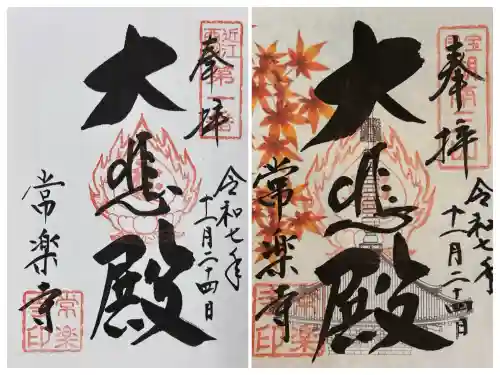 近江
西国
第一番
奉拝
大悲殿
令和七年
十一月二十四日
常楽寺
常楽
寺印
奉拝
大悲殿
令和七年
十一月二十四日
常楽寺
常楽
寺印